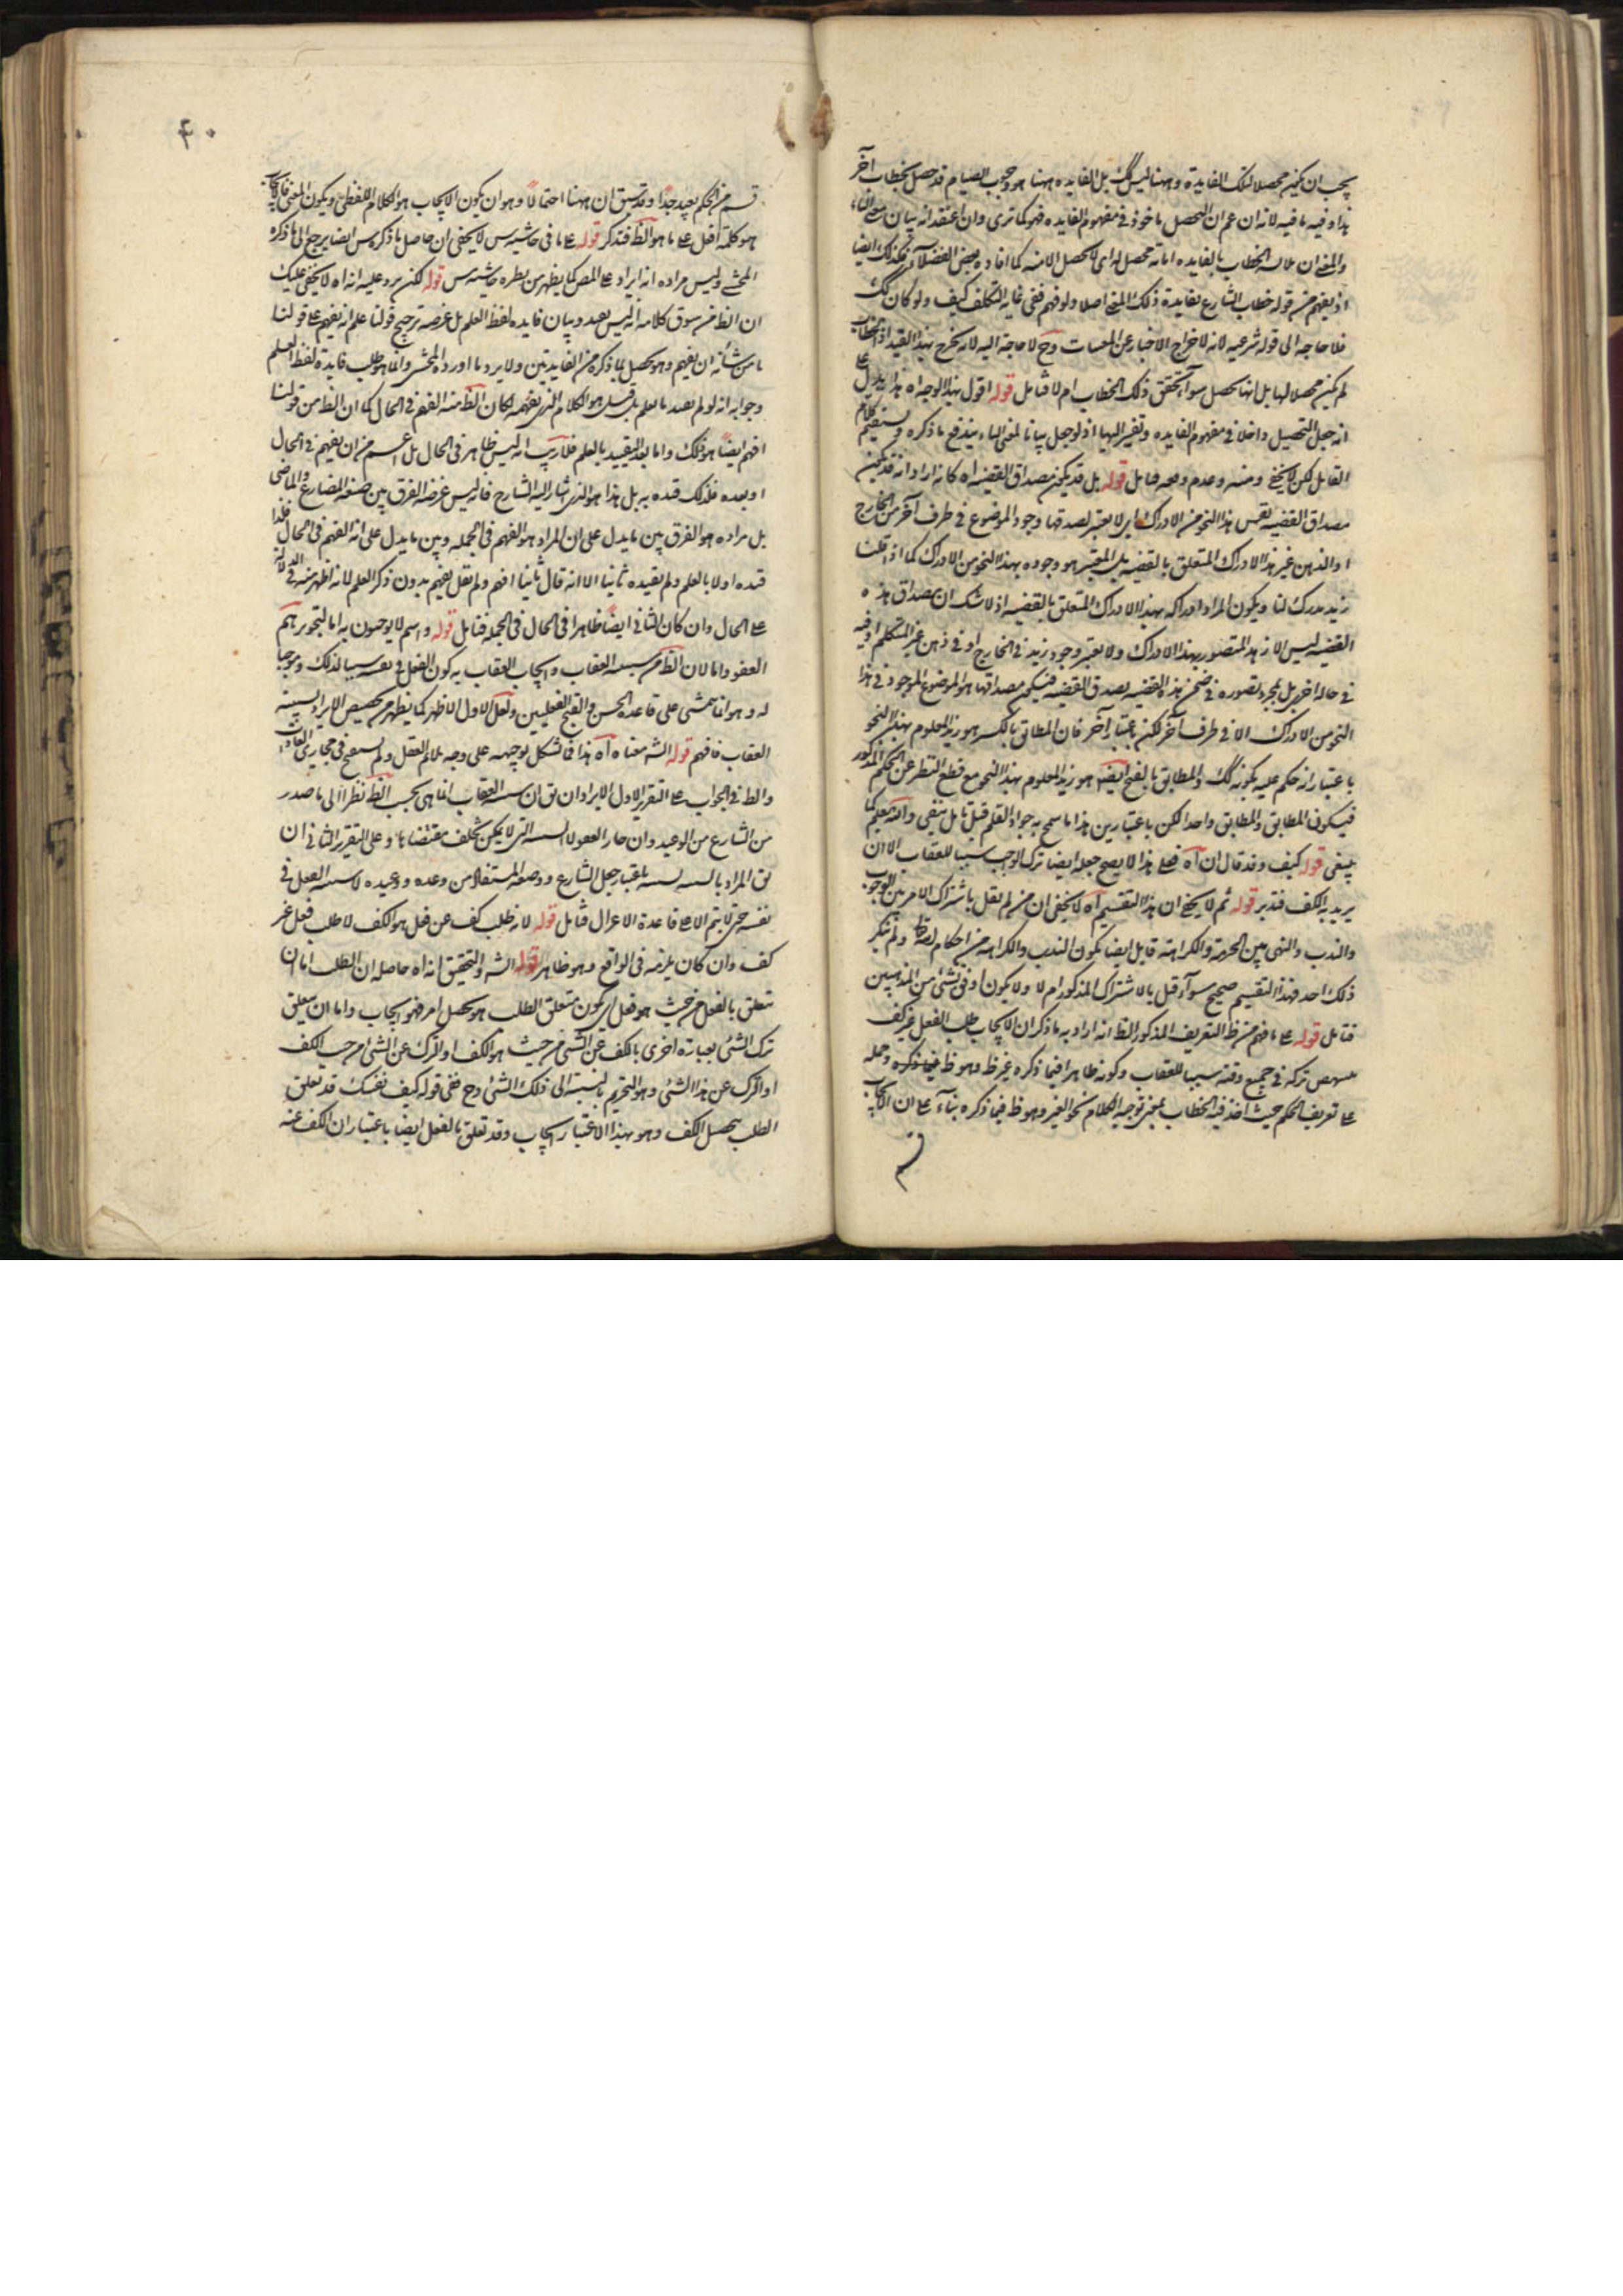 يجب ان يكون محصلا لتلك الفايدة وههنا ليس كك بل الفايدة ههنا هو وجوب الصيام قد حصل بخطاب آخر
هذا وفيه ما فيه لانه ان عم ان التحصيل ماخوذ في مفهوم الفايده فهو كما ترى وان اعتقد انه بيان معنى الباء
والمعنى ان الخطاب بالفايده انما محصل له اى لا تحصل الا منه كما افاده بعض الفضلا فكذلك ايضا
اذ يفهم من قوله خطاب الشارع بفايدة ذلك المعنى اصلا ولو فهم ففى غاية التكلف كيف ولو كان كك
فلا حاجه الى قوله شرعيه لانه لاخراج الاخبار عن وح لا حاجة اليه لانه يخرج بهذا القيد اذ الخطاب
لم يكن محصلا لها بل انها تحصل سوآء تحقق ذلك الخطاب ام لا فتامل قوله اقول بهذا الوجه اه هذا يدل على
انه جعل التحصيل داخلا في مفهوم الفايده وتفسير اليها اذ لو جعل بيانا لمعنى الباء يندفع ما ذكره ويستقيم كلام
القايل لكن لا يخفى وعدم فتامل قوله بل قد يكون مصداق القضيه اه كانه اراد انه قد يكون
مصداق القضية نفس هذا النحو من الادراك اى لا يعتبر لصدقها وجود الموضوع في طرف آخر من الخارج
او الذهن غير هذا الادراك المتعلق بالقضيه بل المعتبر هو وجوده بهذا النحو من الادراك كما اذا قلنا
زيد مدرك لنا ويكون المراد ادراكه بهذا الادراك المتعلق بالقضيه اذ لا شك ان مصداق هذه
القضيه ليس الا زيد المتصور بهذا الادراك ولا يعتبر وجود زيد في الخارج او في ذهن غير المتكلم او فيه
في حالة اخرى بل بمجرد تصوره في ضمن هذه القضيه يصدق القضيه فيكون مصداقها هو الموضوع الموجود في هذا
النحو من الادراك لا في طرف آخر لكن باعتبار آخر فان المطابق بالكسر هو زيد المعلوم بهذا النحو
باعتبار انه حكم عليه بكونه كك والمطابق بالفتح ايضا هو زيد المعلوم بهذا النحو مع قطع النظر عن الحكم المذكور
فيكون المطابق والمطابق واحدا لكن باعتبارين هذا ما سمح به جواد القلم قبل تامل ينبغى والله يعلم كما
ينبغى قوله كيف وقد قال ان اه فعلى هذا لا يصح جعله ايضا ترك الواجب سببا للعقاب الا ان
يريد به الكف فتدبر قوله ثم لا يخفى ان هذا التقسيم آه لا يخفى ان من لم يقل باشتراك الامر بين الوجوب
والندب والنهى بين الحرمة والكراهة قايل ايضا بكون الندب والكراهة من احكام ولم ينكر
ذلك احد فهذا التقسيم صحيح سوآء قيل بالاشتراك المذكور ام لا ولا يكون اوفق بشئ من المذهبين
فتامل قوله على ما فهم من ظ التعريف المذكور الظ انه اراد به ما ذكر ان الايجاب طلب الفعل غير كف
ينتهض تركه في جميع وقته سببا للعقاب وكونه ظاهرا فيما ذكره غير ظ وهو ظ فيما ذكره وحمله
على تعريف الحكم حيث اخذ فيه الخطاب بمعنى توجيه الكلام نحو الغير وهو ظ فيما ذكره بناآ على ان الايجاب
٤٠
قسم من الحكم بعيد جدا وقد سبق ان ههنا احتمالا وهو ان يكون الايجاب هو الكلام اللفظى ويكون المعنى فالايجاب
هو كلمة افعل على ما هو الظ فتذكر قوله على ما في حاشيه س لا يخفى ان حاصل ما ذكره س ايضا يرجع الى ما ذكره
المحشى وليس مراده انه ايراد على المص كما يظهر من نظره حاشيه س قوله لكن يرد عليه انه اه لا يخفى عليك
ان الظ من سوق كلامه انه ليس بصدد بيان فايده لفظ العلم بل غرضه ترجيح قولنا علم انه يفهم على قولنا
ما من شأنه ان يفهم وهو يحصل بما ذكره من الفايدتين ولا يرد ما اورده المحشى وانما هو طلب فايدة لفظ العلم
وجوابه انه لو لم يقيد بالعلم بل قيل هو الكلام الذى يفهم لكان الظ منه الفهم في الحال كما ان الظ من قولنا
افهم ايضا هو ذلك واما بعد التقييد بالعلم فلا ريب انه ليس ظاهر في الحال بل اعم من ان يفهم في الحال
او بعده فلذلك قيده به بل هذا هو الذى اشار اليه الشارح فانه ليس غرضه الفرق بين صيغه المضارع والماضى
بل مراده هو الفرق بين ما يدل على ان المراد هو الفهم في الجمله وبين ما يدل على انه الفهم في الحال فلذا
قيده اولا بالعلم ولم يقيده ثانيا الا انه قال ثانيا افهم ولم يقل يفهم بدون ذكر العلم لانه اظهر منه في الدلالة
على الحال وان كان الثانى ايضا ظاهرا في الحال في الجمله فتامل قوله واسم لا يوجبون به اما لتجويزهم
العفو واما لان الظ من سببيه العقاب وايجاب العقاب به كون الفعل في نفسه سببا لذلك وموجبا
له وهو انما يتمشى على قاعدة الحسن والقبح العقليين ولعل الاول الاظهر كما يظهر من تخصيص الايراد بسببية
العقاب فافهم قوله الشه معناه آه هذا مما تشكل توجيهه على وجه يلائم العقل ولم يسمع في مجارى العادات
والظ في الجواب على التقرير الاول للايراد ان يق ان سببيه العقاب انما هى بحسب الظ نظرا الى ما صدر
من الشارع من الوعيد وان جاز العفو لا السببيه التى لا يمكن تخلف مقتضاها وعلى التقرير الثانى ان
يق المراد بالسببيه السببيه باعتبار جعل الشارع ووضعه المستفاد من وعده ووعيده لا سببيه الفعل في
نفسه حتى لا يتم الا على قاعدة الاعتزال فتامل قوله لانه طلب كف عن فعل هو الكف لا طلب فعل غير
كف وان كان يلزمه في الواقع وهو ظاهر قوله الشه والتحقيق انه اه حاصله ان الطلب اما ان
يتعلق بالفعل من حيث هو فعل اى يكون متعلق الطلب هو تحصل امر فهو ايجاب واما ان يتعلق
ترك الشئ بعبارة اخرى بالكف عن الشئ من حيث هو الكف او الترك عن الشئ اى من حيث الكف
او الترك عن هذا الشئ وهو التحريم بالنسبة الى ذلك الشئ وح ففى قوله كيف نفسك قد تعلق
الطلب بتحصيل الكف وهو بهذا الاعتبار ايجاب وقد تعلق بالفعل ايضا باعتبار ان الكف عنه